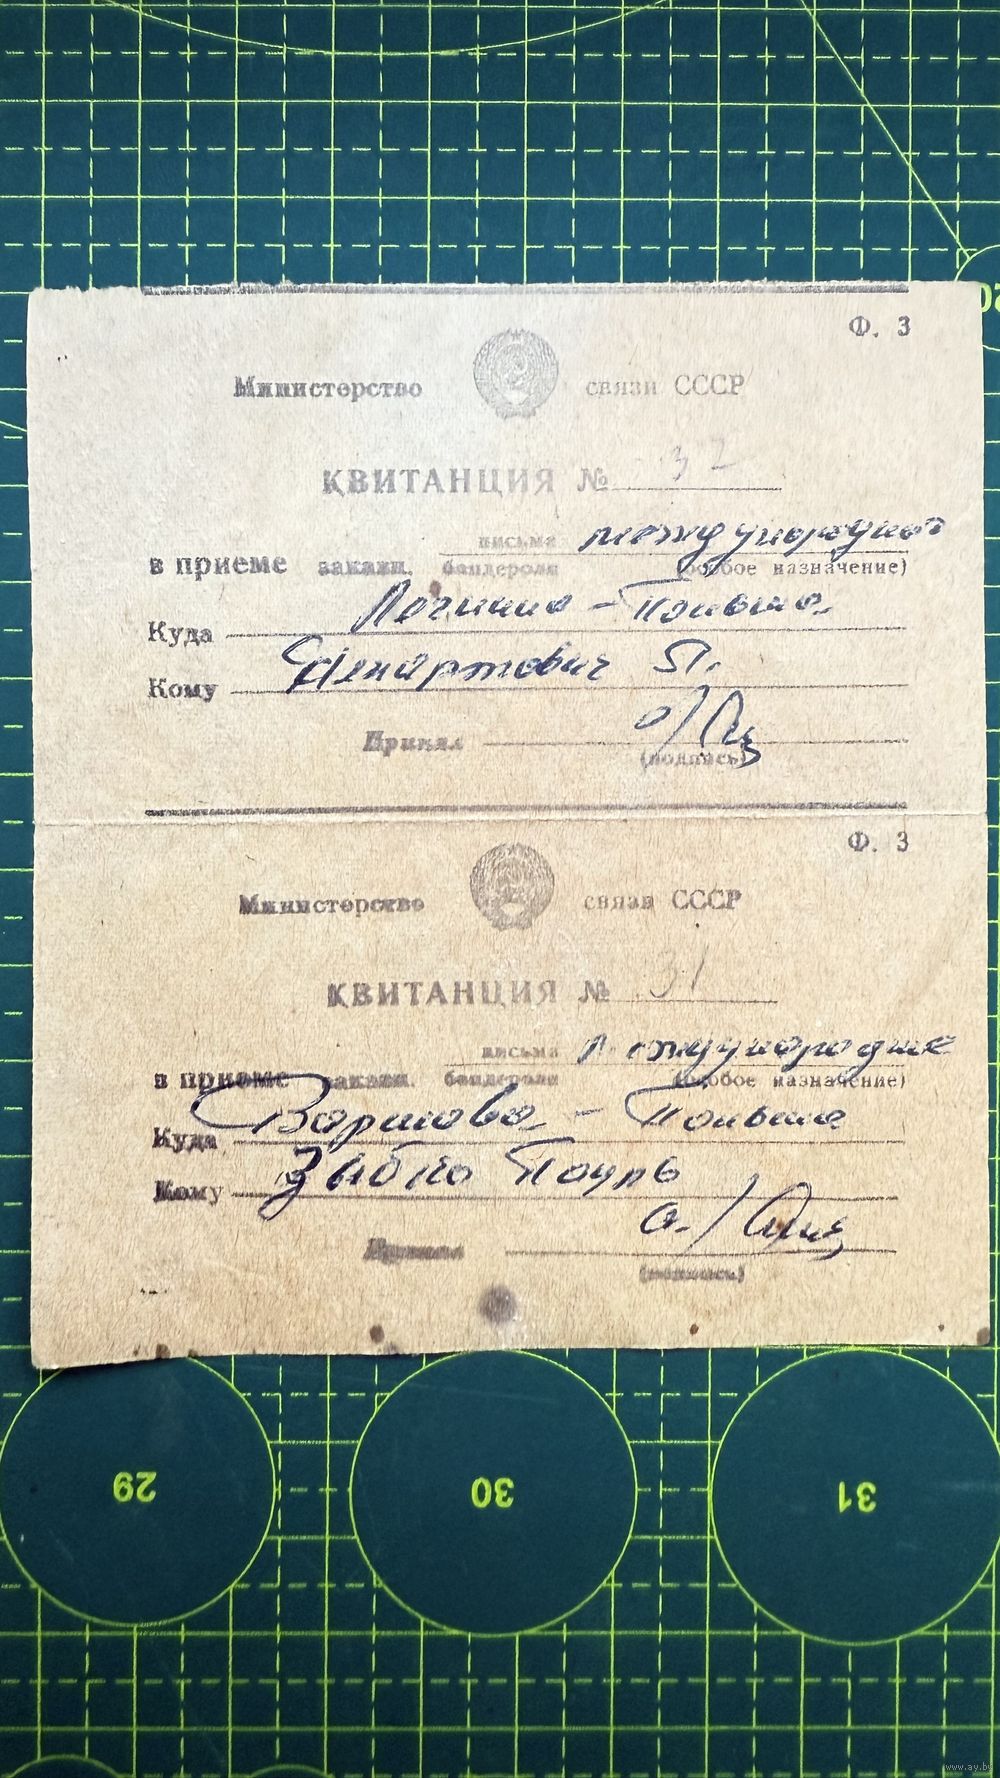 Ф. 3
Министерство связи СССР
КВИТАНЦИЯ № 32
письма международное
в приеме заказн. бандероли (особое назначение)
Куда - Польша
Кому Ленартович Я.
Принял
(подпись)
Ф. 3
Министерство связи СССР
КВИТАНЦИЯ № 31
письма международное
в приеме заказн. бандероли (особое назначение)
Куда Варшава - Польша
Кому Зыбко
Принял
(подпись)
29
30
31
www.ay.by